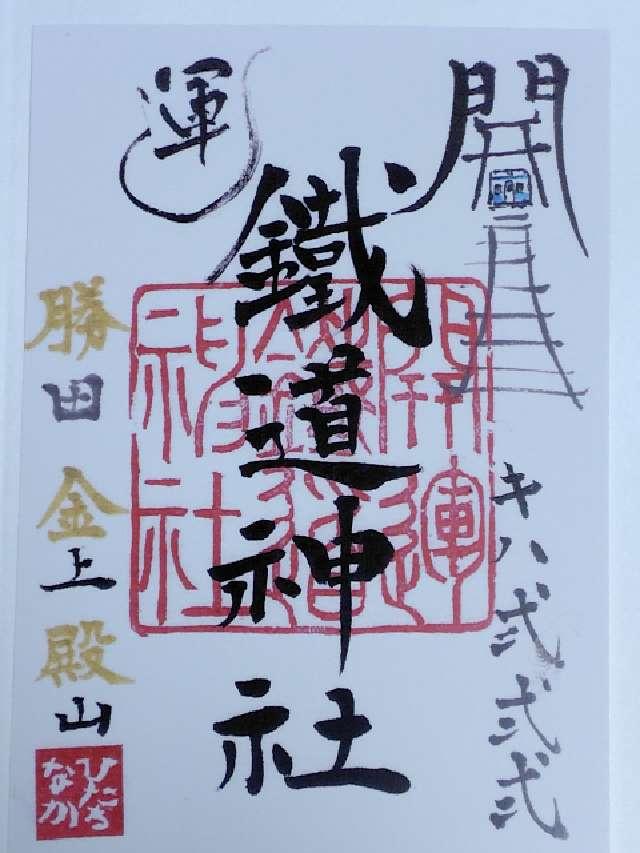 開
運
キハ弐弐弐
鐵道神社
開運
鐵道
神社
勝田 金上 殿山
ひたち
なか